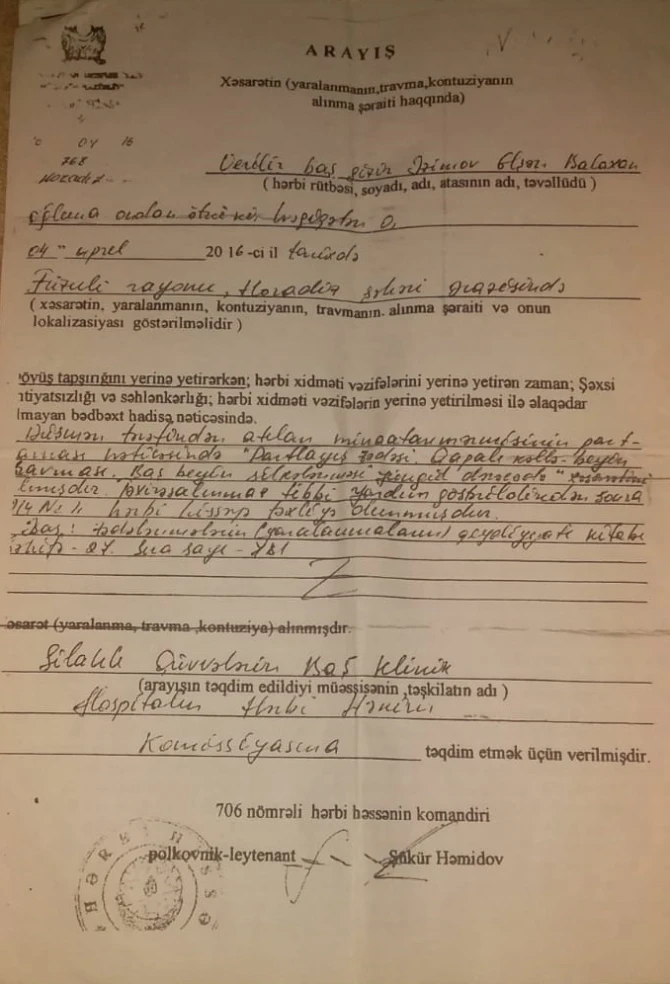 ARAYIŞ
Xəsarətin (yaralanmanın,travma,kontuziyanın
alınma şəraiti haqqında)
04 16
768
Verilir baş gizir Əzimov Elşən Balaxan
( hərbi rütbəsi, soyadı, adı, atasının adı, təvəllüdü )
oğluna ondan ötrü ki, həqiqətən o,
04 " aprel 2016-ci il tarixdə
Füzuli rayonu, Horadiz şəhəri ərazisində
( xəsarətin, yaralanmanın, kontuziyanın, travmanın. alınma şəraiti və onun
lokalizasiyası göstərilməlidir )
öyüş tapşırığını yerinə yetirərkən; hərbi xidməti vəzifələrini yerinə yetirən zaman; Şəxsi
ıtiyatsızlığı və səhlənkərlığı; hərbi xidməti vəzifələrin yerinə yetirilməsi ilə əlaqədar
lmayan bədbəxt hadisə nəticəsində.
Düşmən tərəfindən atılan minaatan mərmisinin part-
nəticəsində "Partlayış zədəsi. Qapalı kəllə-beyin
travması. Baş beyin silkələnməsi yüngül dərəcədə" xəsarətini
almışdır. tibbi yardım göstərildikdən sonra
hərbi hissəyə təxliyə olunmuşdur.
(yaralanmaların) qeydiyyatı kitabı
səhifə - 27. Sıra sayı - 781
əsarət (yaralanma, travma ,kontuziya) alınmışdır.
Silahlı Qüvvələrin Baş Klinik
(arayışın təqdim edildiyi müəssisənin ,təşkilatın adı )
Hospitalın Hərbi Həkim
Komissiyasına təqdim etmək üçün verilmişdir.
706 nömrəli hərbi həssənin komandiri
polkovnik-leytenant Şükür Həmidov